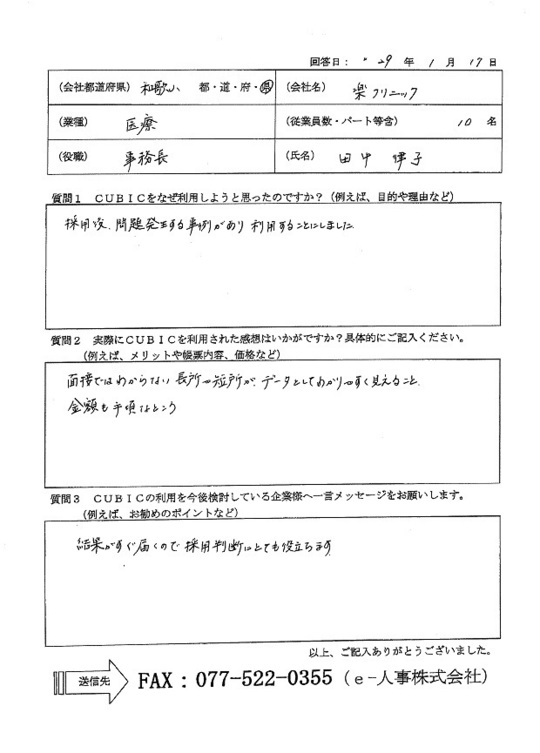 回答日： 〃29 年 1 月 17 日
（会社都道府県） 和歌山 都・道・府・県
（会社名） 楽クリニック
（業種） 医療
（従業員数・パート等含） 10 名
（役職） 事務長
（氏名） 田中 律子
質問１ ＣＵＢＩＣをなぜ利用しようと思ったのですか？（例えば、目的や理由など）
採用後、問題発生する事例があり 利用することにしました
質問２ 実際にＣＵＢＩＣを利用された感想はいかがですか？具体的にご記入ください。
（例えば、メリットや帳票内容、価格など）
面接ではわからない 長所や短所が、データとしてわかりやすく見えること、
金額も手頃なところ
質問３ ＣＵＢＩＣの利用を今後検討している企業様へ一言メッセージをお願いします。
（例えば、お勧めのポイントなど）
結果がすぐ届くので 採用判断にとても役立ちます
以上、ご記入ありがとうございました。
送信先 FAX：077-522-0355（ｅ−人事株式会社）